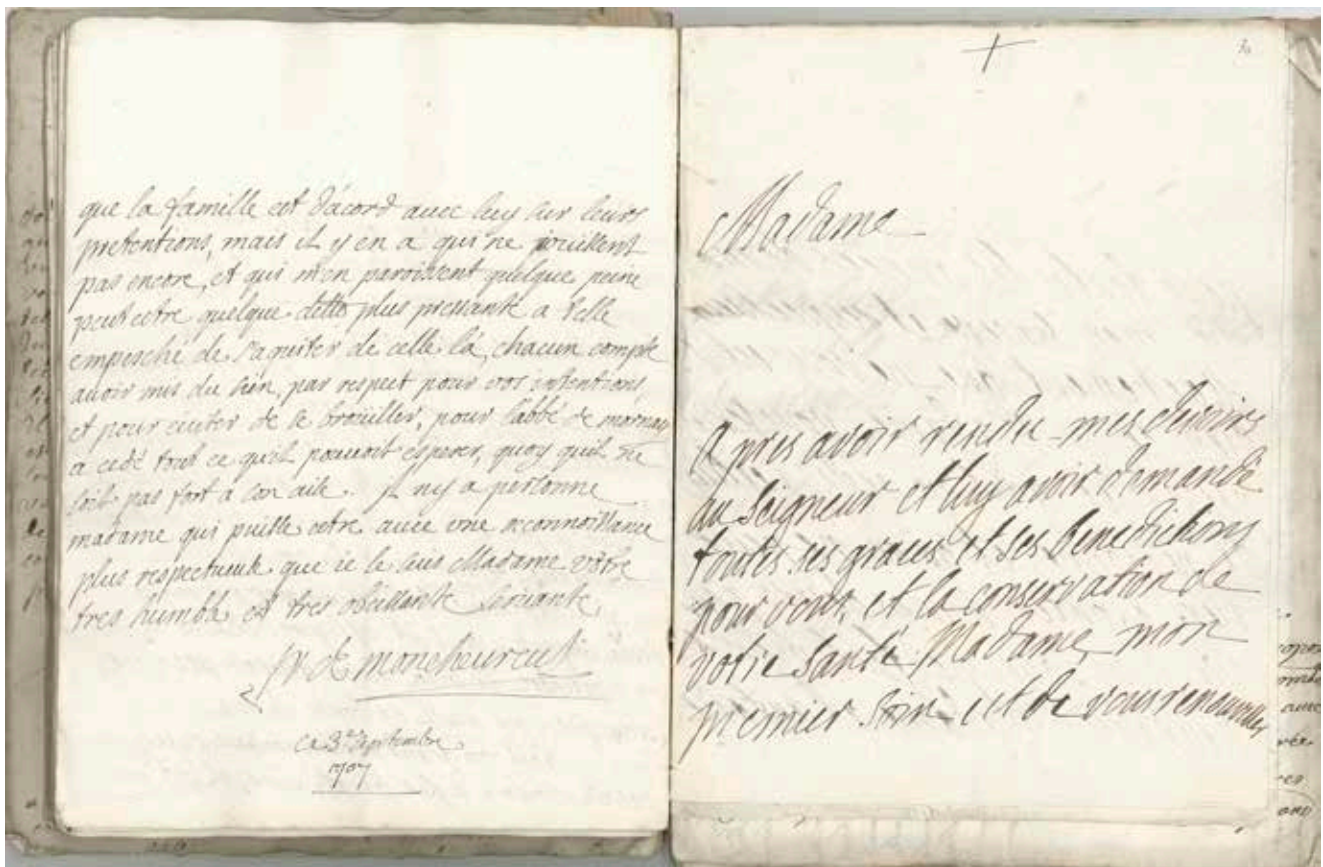 que la famille est d'acord avec luy sur leurs
pretentions, mais il y en a qui ne jouissent
pas encore, et qui m'en paroissent quelque peine
peut estre quelque dette plus pressante a t'elle
empesché de s'aquiter de celle là, chacun compte
avoir mis du sien, par respect pour vos intentions,
et pour eviter de se brouiller, pour l'abbé de mornay
a cedé tout ce qu'il pouvoit esperer, quoy qu'il ne
soit pas fort à son aise. il n'y a personne
madame qui puisse estre avec une reconnoissance
plus respectueuse que je le suis Madame vôtre
tres humble et tres obeissante servante
de moncheureul
ce 3e. septembre
1707
30
Madame
A pres avoir rendu mes devoirs
au seigneur et luy avoir demandé
toutes ses graces et ses benedictions
pour vous, et la conservation de
votre santé Madame, mon
premier soin est de vous renouveller